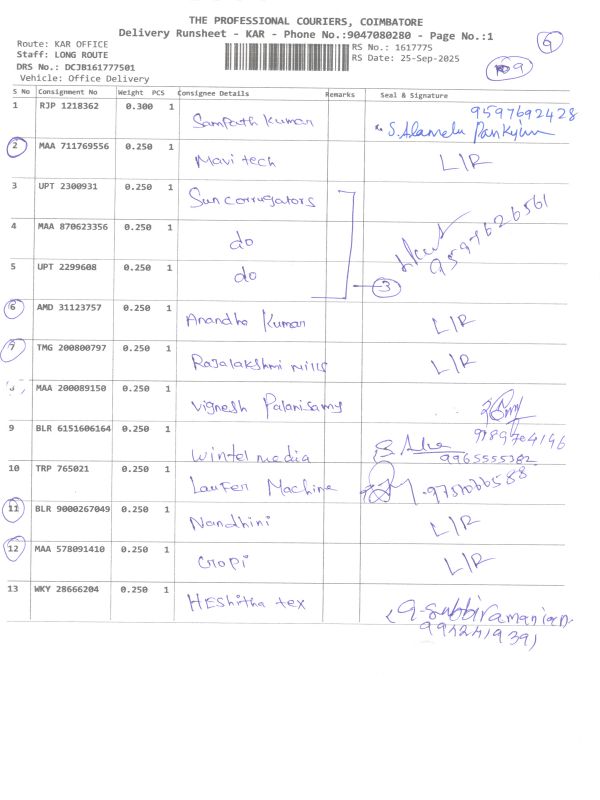 THE PROFESSIONAL COURIERS, COIMBATORE
Delivery Runsheet - KAR - Phone No.:9047080280 - Page No.:1
6
Route: KAR OFFICE
RS No.: 1617775
Staff: LONG ROUTE
RS Date: 25-Sep-2025
DRS No.: DCJB161777501
9
Vehicle: Office Delivery
S No Consignment No Weight PCS Consignee Details Remarks Seal & Signature
1 RJP 1218362 0.300 1 Sampath Kumar 9597692428
S. Alamelu Pankajam
2 MAA 711769556 0.250 1 Mavi tech L/R
3 UPT 2300931 0.250 1 Sun corrugators
4 MAA 870623356 0.250 1 do 9597626561
5 UPT 2299608 0.250 1 do
3
6 AMD 31123757 0.250 1 Anandha Kumar L/R
7 TMG 200800797 0.250 1 Rajalakshmi mills L/R
8 MAA 200089150 0.250 1 Vignesh Palanisamy
9 BLR 6151606164 0.250 1 Wintel media 9965555382
10 TRP 765021 0.250 1 Laufer Machine
11 BLR 9000267049 0.250 1 Nandhini L/R
12 MAA 578091410 0.250 1 Cropi L/R
13 WKY 28666204 0.250 1 HEshitha tex